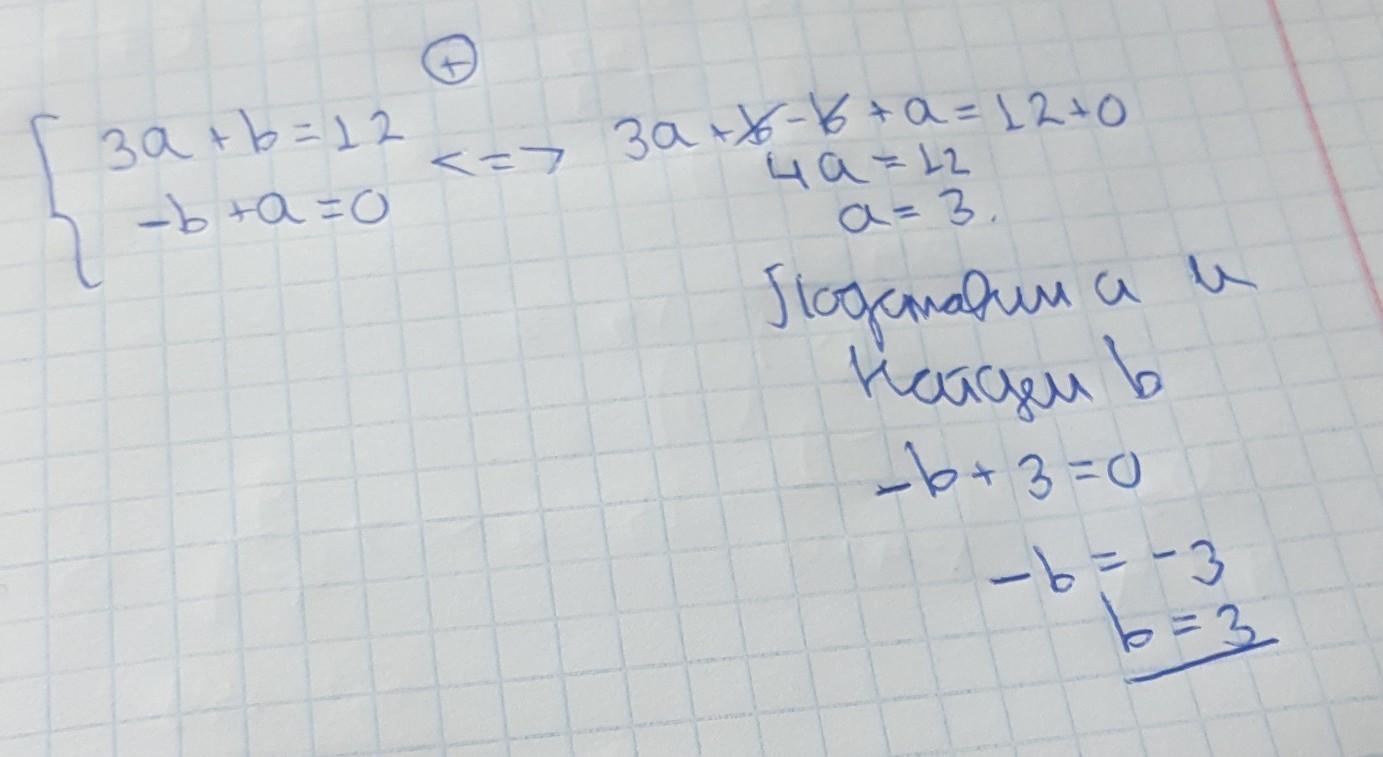 ⊕
{ 3a + b = 12
-b + a = 0
<=> 3a + b - b + a = 12 + 0
4a = 12
a = 3.
Подставим a и
найдем b
-b + 3 = 0
-b = -3
b = 3